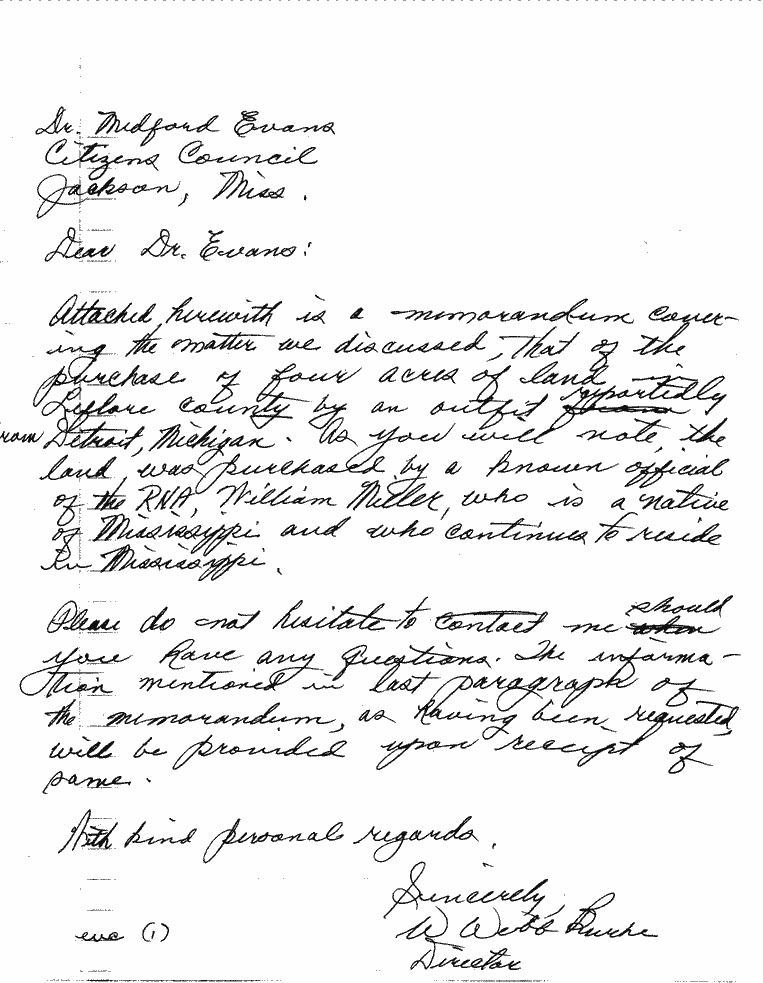 Dr. Medford Evans
Citizens Council
Jackson, Miss.
Dear Dr. Evans:
Attached herewith is a memorandum cover-
ing the matter we discussed, that of the
purchase of four acres of land in
reportedly
Leflore county by an outfit
from Detroit, Michigan. As you will note, the
land was purchased by a known official
of the RNA, William Miller, who is a native
of Mississippi and who continues to reside
in Mississippi.
should
Please do not hesitate to contact me when
you have any questions. The informa-
tion mentioned in last paragraph of
the memorandum, as having been requested,
will be provided upon receipt of
same.
With kind personal regards.
Sincerely,
W Webb Burke
Director
enc (1)